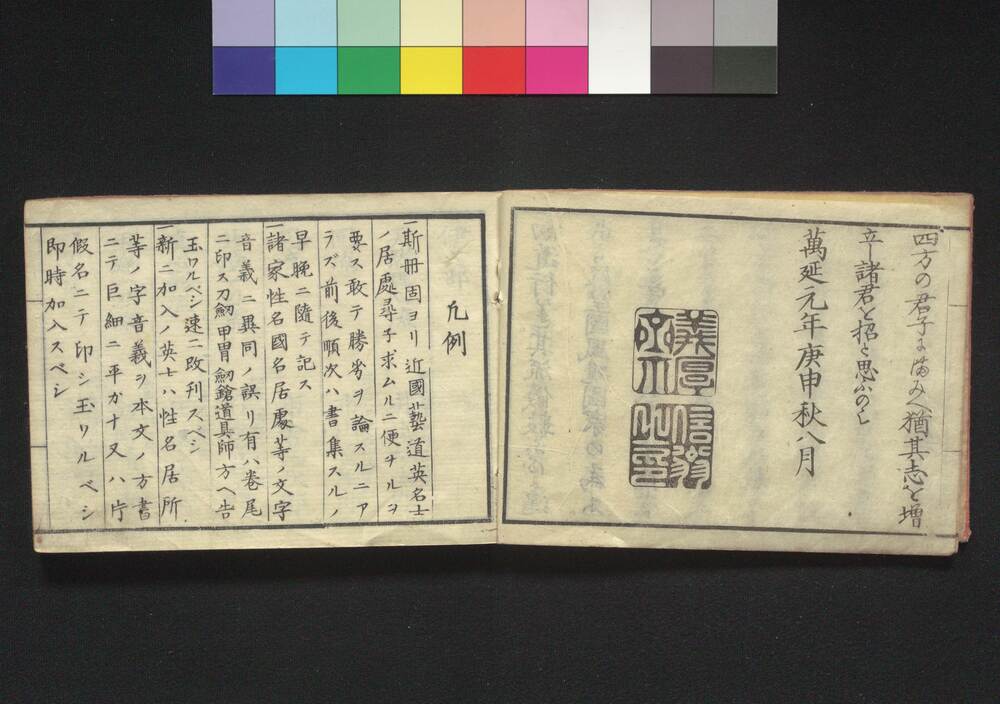 四方の君子に満みへ猶其志を増
立し諸君と招と思ふのミ
萬延元年庚申秋八月
凡例
一斯册固ヨリ近國藝道英名士
ノ居處尋子求ムルニ便ナルヲ
要ス敢テ勝劣ヲ論スルニア
ラズ前後順次ハ書集スルノ
早晩ニ隨テ記ス
一諸家性名國名居處等ノ文字
音義ニ異同ノ誤リ有ハ巻尾
ニ印ス刀劔甲冑劔鎗道具師方ヘ告
玉ワルベシ速ニ改刊スベシ
一新ニ加入ノ英士ハ性名居所
等ノ字音義ヲ本文ノ方書
ニテ巨細ニ平ガナ又ハ片
假名ニテ印シ玉ワルベシ
即時加入スベシ